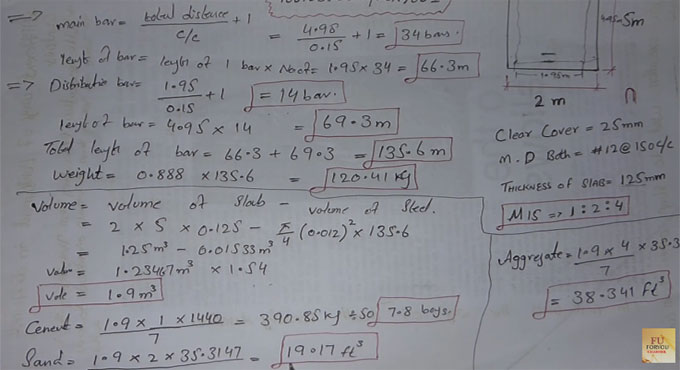 => main bar = total distance / c/c + 1 = 4.95 / 0.15 + 1 = 34 bars.
lenght of bar = lenght of 1 bar × No of = 1.95 × 34 = 66.3m
=> Distribution bar = 1.95 / 0.15 + 1 = 14 bar.
lenght of bar = 4.95 × 14 = 69.3m
Total lenght of bar = 66.3 + 69.3 = 135.6 m
Weight = 0.888 × 135.6 = 120.41 Kg
Volume = volume of slab - volume of steel.
= 2 × 5 × 0.125 - π/4 (0.012)² × 135.6
= 1.25m³ - 0.01533m³
= 1.23467m³ × 1.54
= 1.9m³
Cement = 1.9 × 1 × 1440 / 7 = 390.85 Kg ÷ 50 7.8 bags.
Sand = 1.9 × 2 × 35.3147 = 19.17 ft³
5m
1.95m
2 m
Clear Cover = 25mm
M.D Both = #12@150c/c
THICKNESS of SLAB = 125mm
M15 => 1:2:4
Aggregate = 1.9 × 4 × 35.3 / 7
= 38.341 ft³
FU
FORYOU